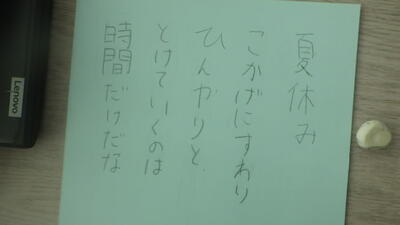 夏休み
こかげにすわり
ひんやりと、
とけていくのは
時間だけだな
Lenovo